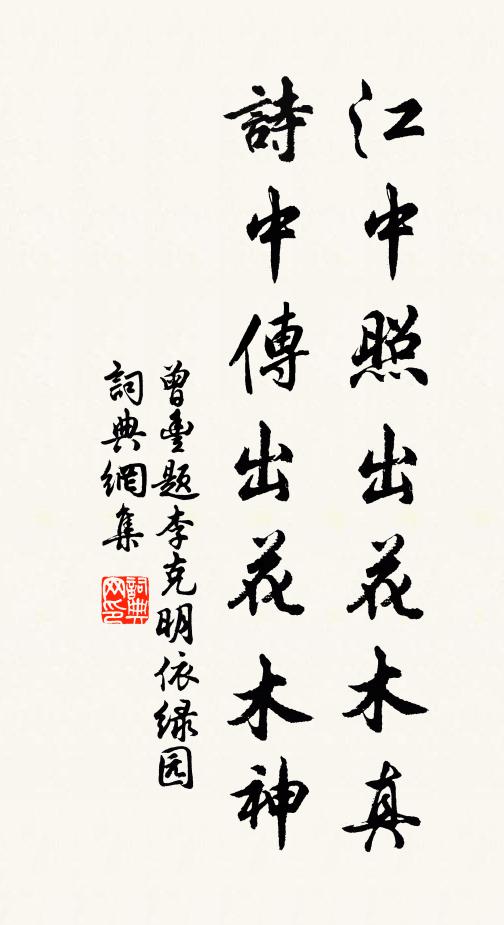 江中照出花木真
詩中傳出花木神
曾豐題李克明依绿园
詞典網集
詞典
网印